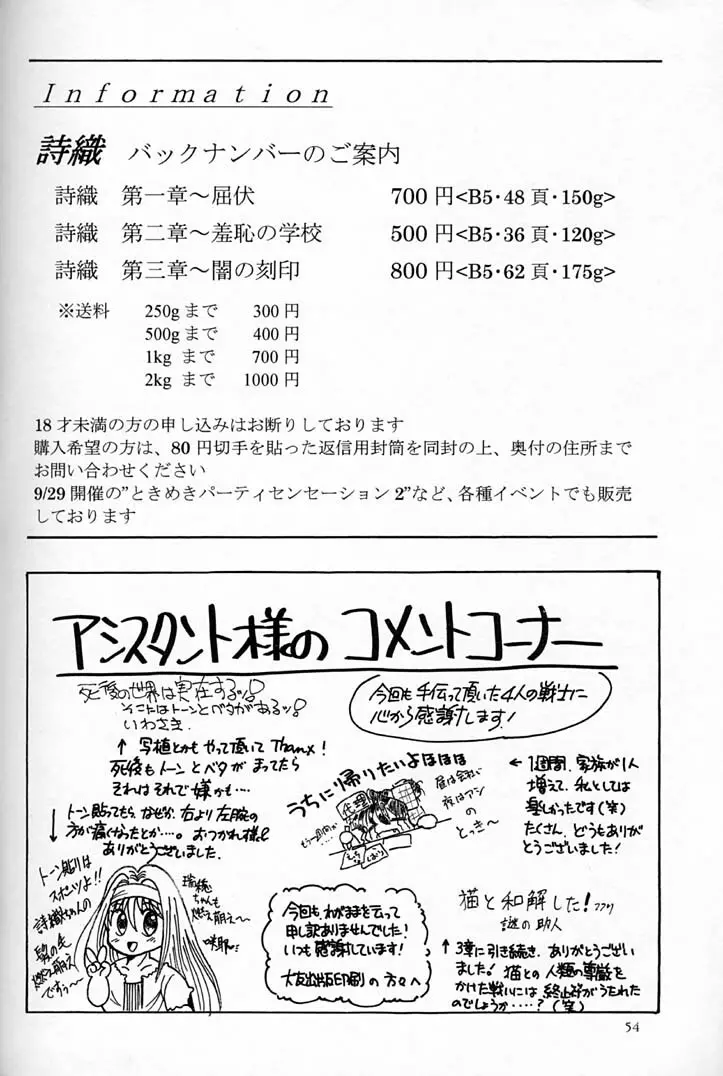 Information
詩織 バックナンバーのご案内
詩織 第一章～屈伏 700 円<B5・48 頁・150g>
詩織 第二章～羞恥の学校 500 円<B5・36 頁・120g>
詩織 第三章～闇の刻印 800 円<B5・62 頁・175g>
※送料 250g まで 300 円
500g まで 400 円
1kg まで 700 円
2kg まで 1000 円
18 才未満の方の申し込みはお断りしております
購入希望の方は、80 円切手を貼った返信用封筒を同封の上、奥付の住所まで
お問い合わせください
9/29 開催の”ときめきパーティセンセーション 2”など、各種イベントでも販売
しております
アシスタント様の コメントコーナー
死後の世界は実在するッ!
そこにはトーンとベタがあるッ!
いわさき
↑ 写植とかも やって頂いて Thanx!
死後も トーンと ベタが まってたら
それは それで 嫌かも…
今回も 手伝って頂いた 4人の戦士に
心から感謝します!
うちに帰りたいよほほほ
昼は会社に
夜はアシ
の
とっき～
← 1週間、家族が1人
増えて、私としては
楽しかったです(笑)
たくさん、どうもありが
とうございました!
↓ トーン貼ってもら、なぜか、右より左腕の
方が痛くなったとか…。おつかれ様&
ありがとうございました.
トーン貼りは
スポーツよ!!
詩織ちゃんの
髪の毛
燃え萌え
ですぅ～
瑞穂
ちゃんも
燃え萌え～
咲耶
今回も、わがままを云って
申し訳ありませんでした!
いつも感謝しています!
大友出版印刷 の 方々へ
猫と和解した! フフリ
謎の助人
↑ 3章に引き続き、ありがとうござい
ました! 猫との人類の尊厳を
かけた戦いには 終止符がうたれた
のでしょうか……? (笑)
54